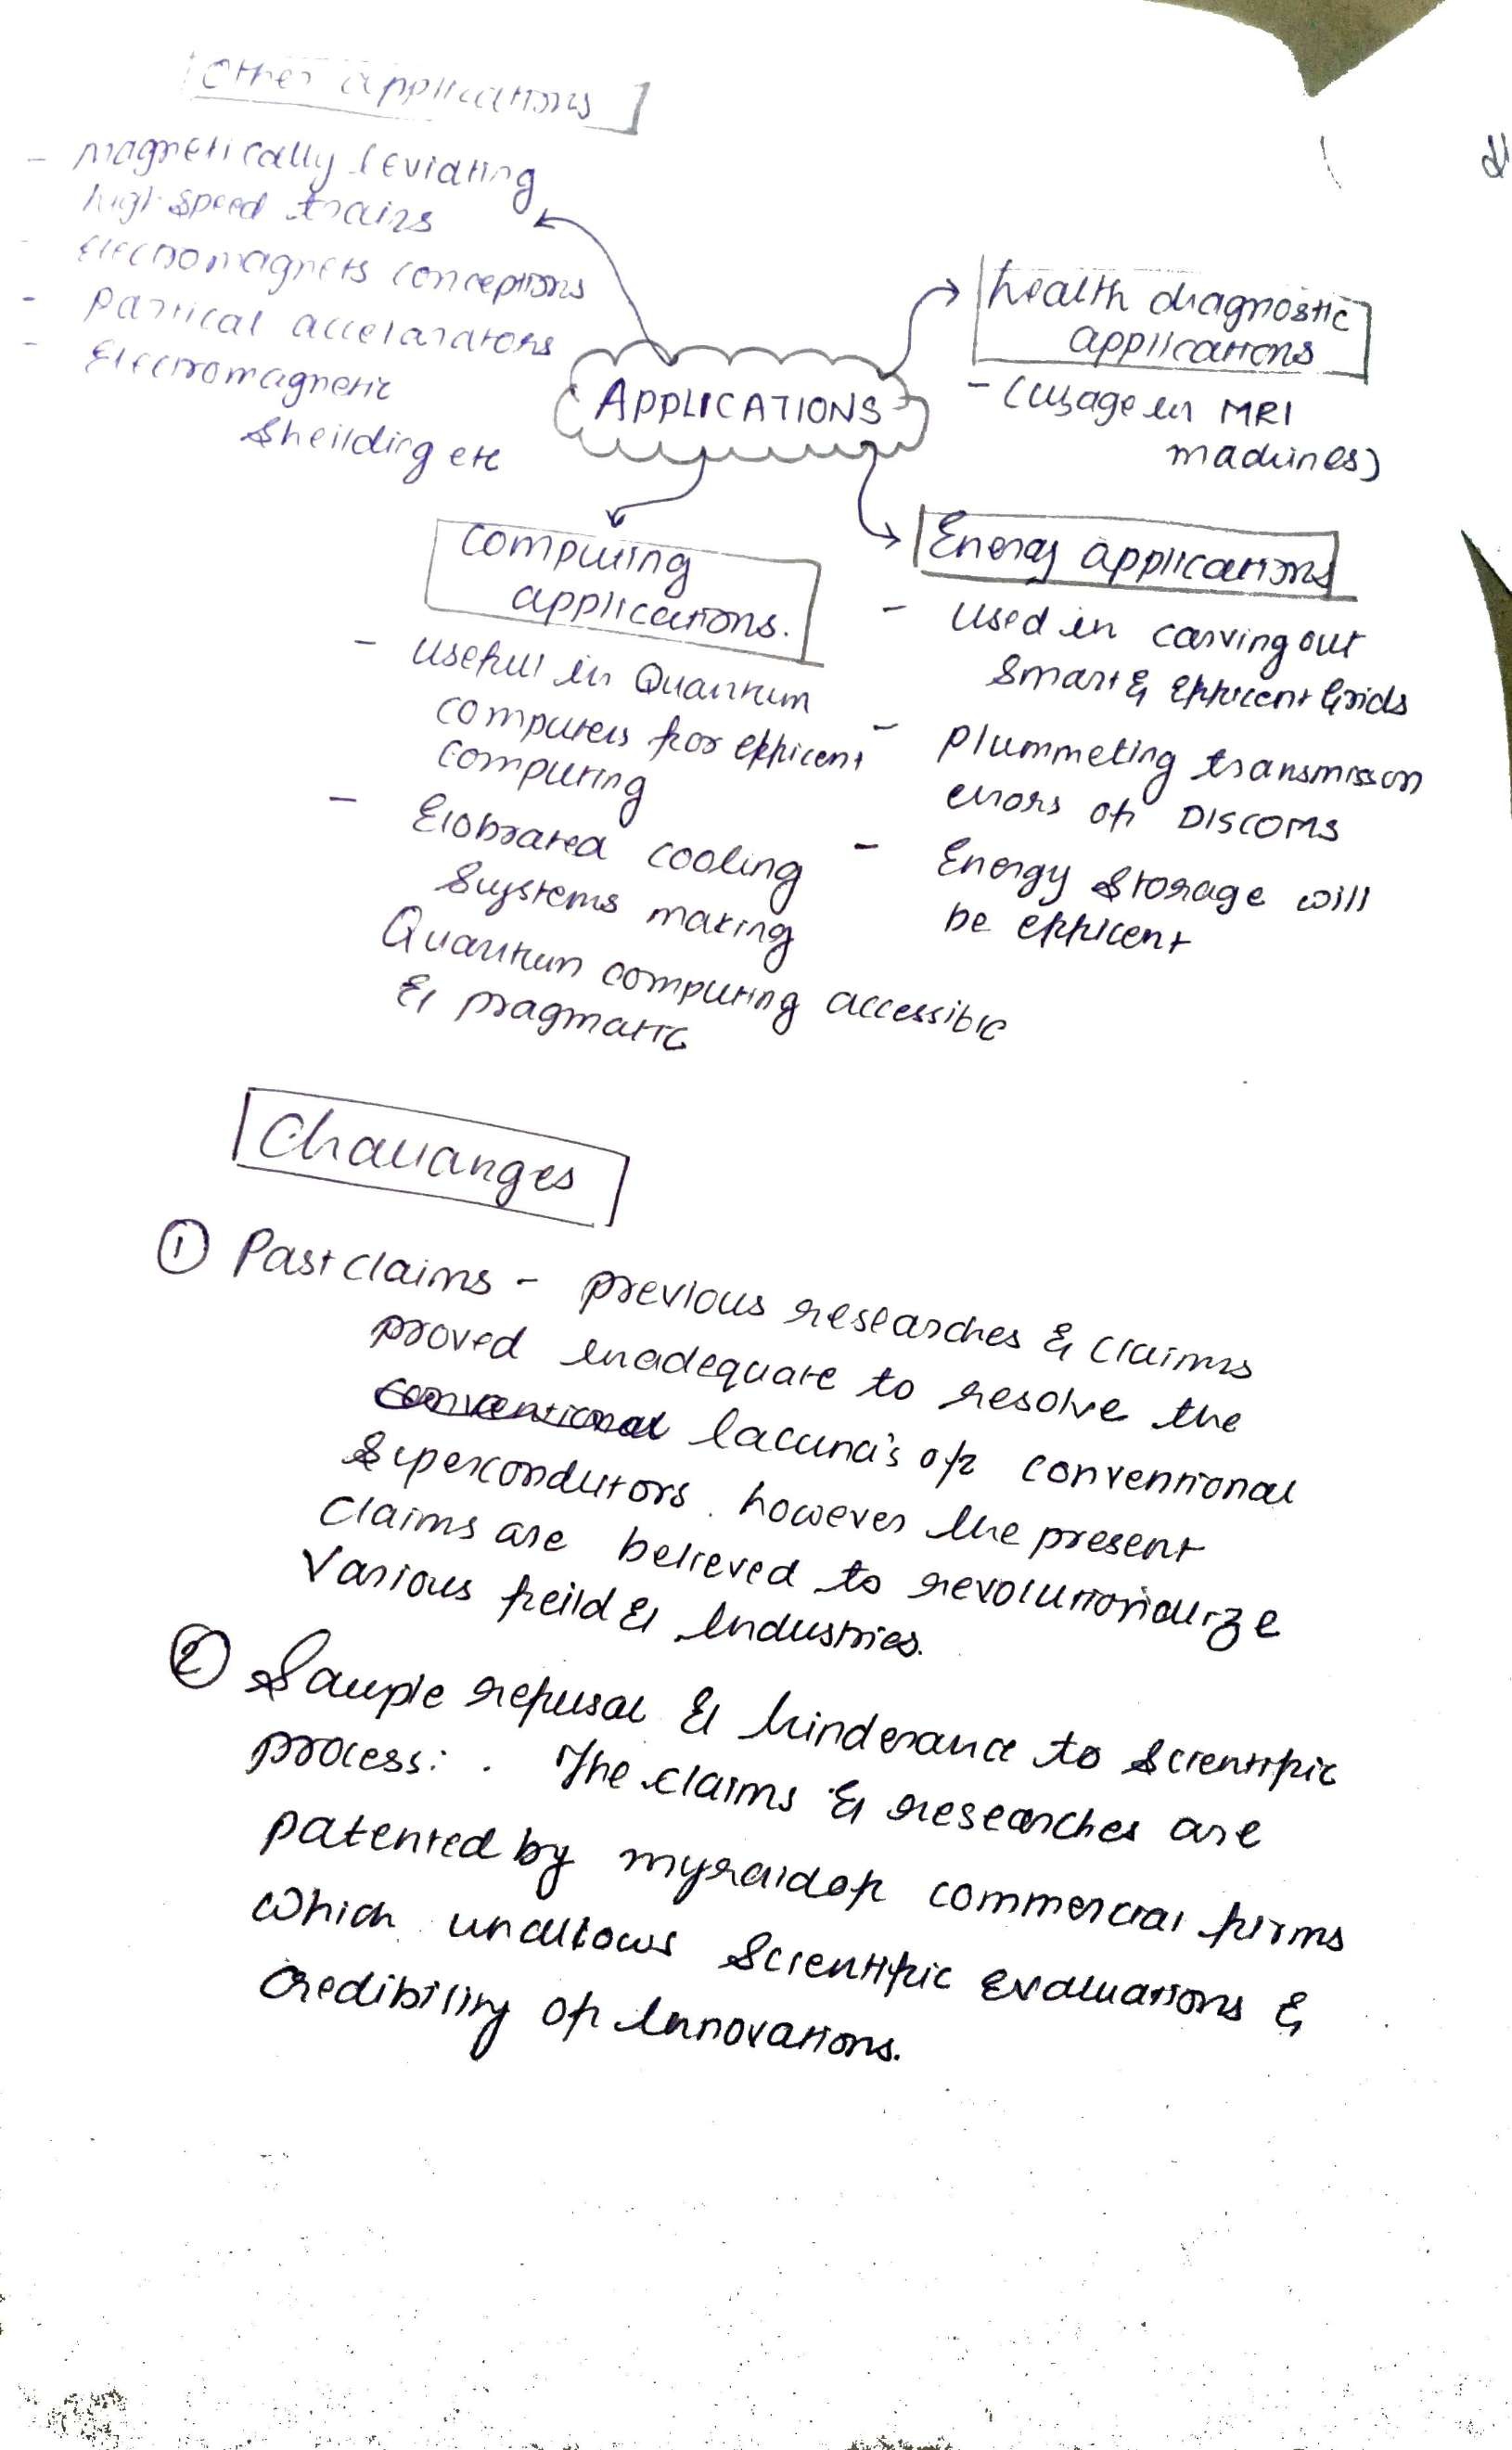 Other applications
- magnetically leviating
high speed trains
- Electromagnets conceptions
- partical accelarators
- Electromagnetic
Sheilding etc
APPLICATIONS
health diagnostic
applications
- (usage in MRI
machines)
Computing
applications.
- useful in Quantum
computers for efficent
computing
- Elobrated cooling
Systems making
Quantum computing accessible
& pragmatic
Energy applications
- used in carving out
Smart & Efficent Grids
- plummeting transmisson
errors of DISCOMS
- Energy Storage will
be efficent
Challanges
① Past claims - previous researches & claims
proved inadequate to resolve the
conventional lacuna's of conventional
Seperconductors. however the present
claims are believed to revolutionalize
Various feild & Industries.
② Sample refusal & hinderance to scientific
process: . The claims & researches are
patented by myraid of commercial firms
which unallows Scientific Evaluations &
credibility of Innovations.